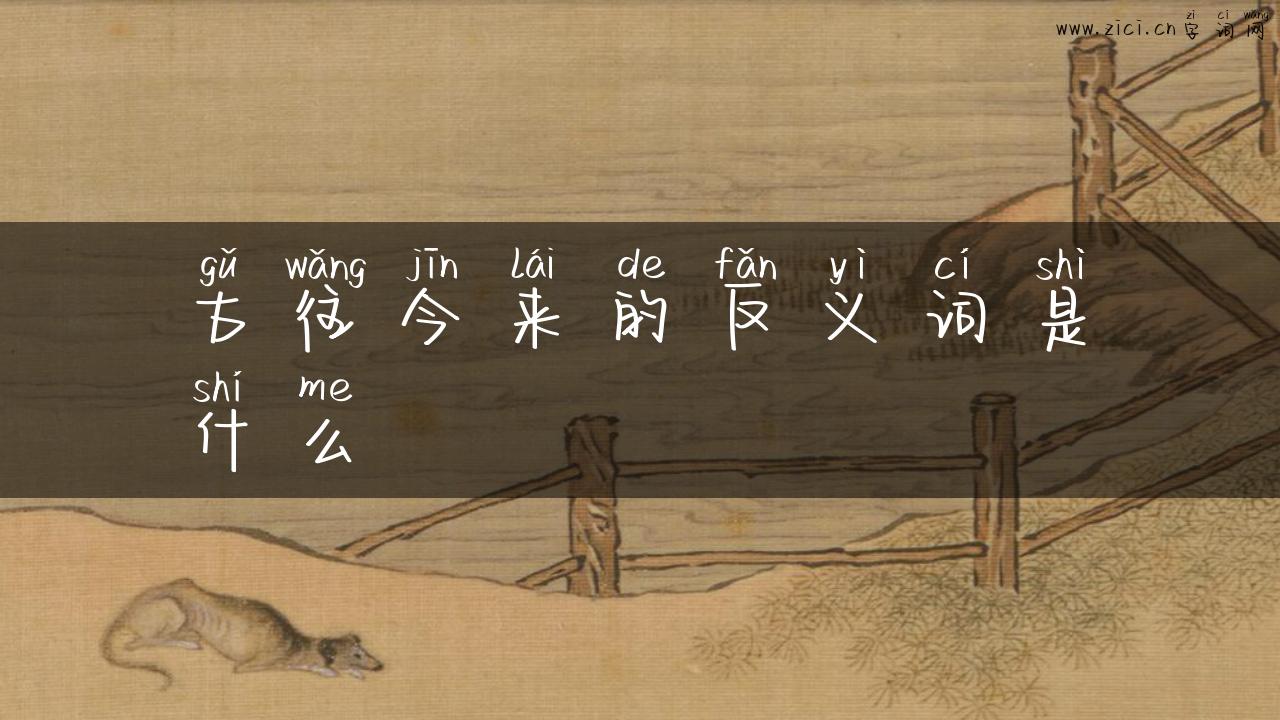 zì cí wǎng
www.zici.cn 字词网
gǔ wǎng jīn lái de fǎn yì cí shì
古往今来的反义词是
shí me
什么